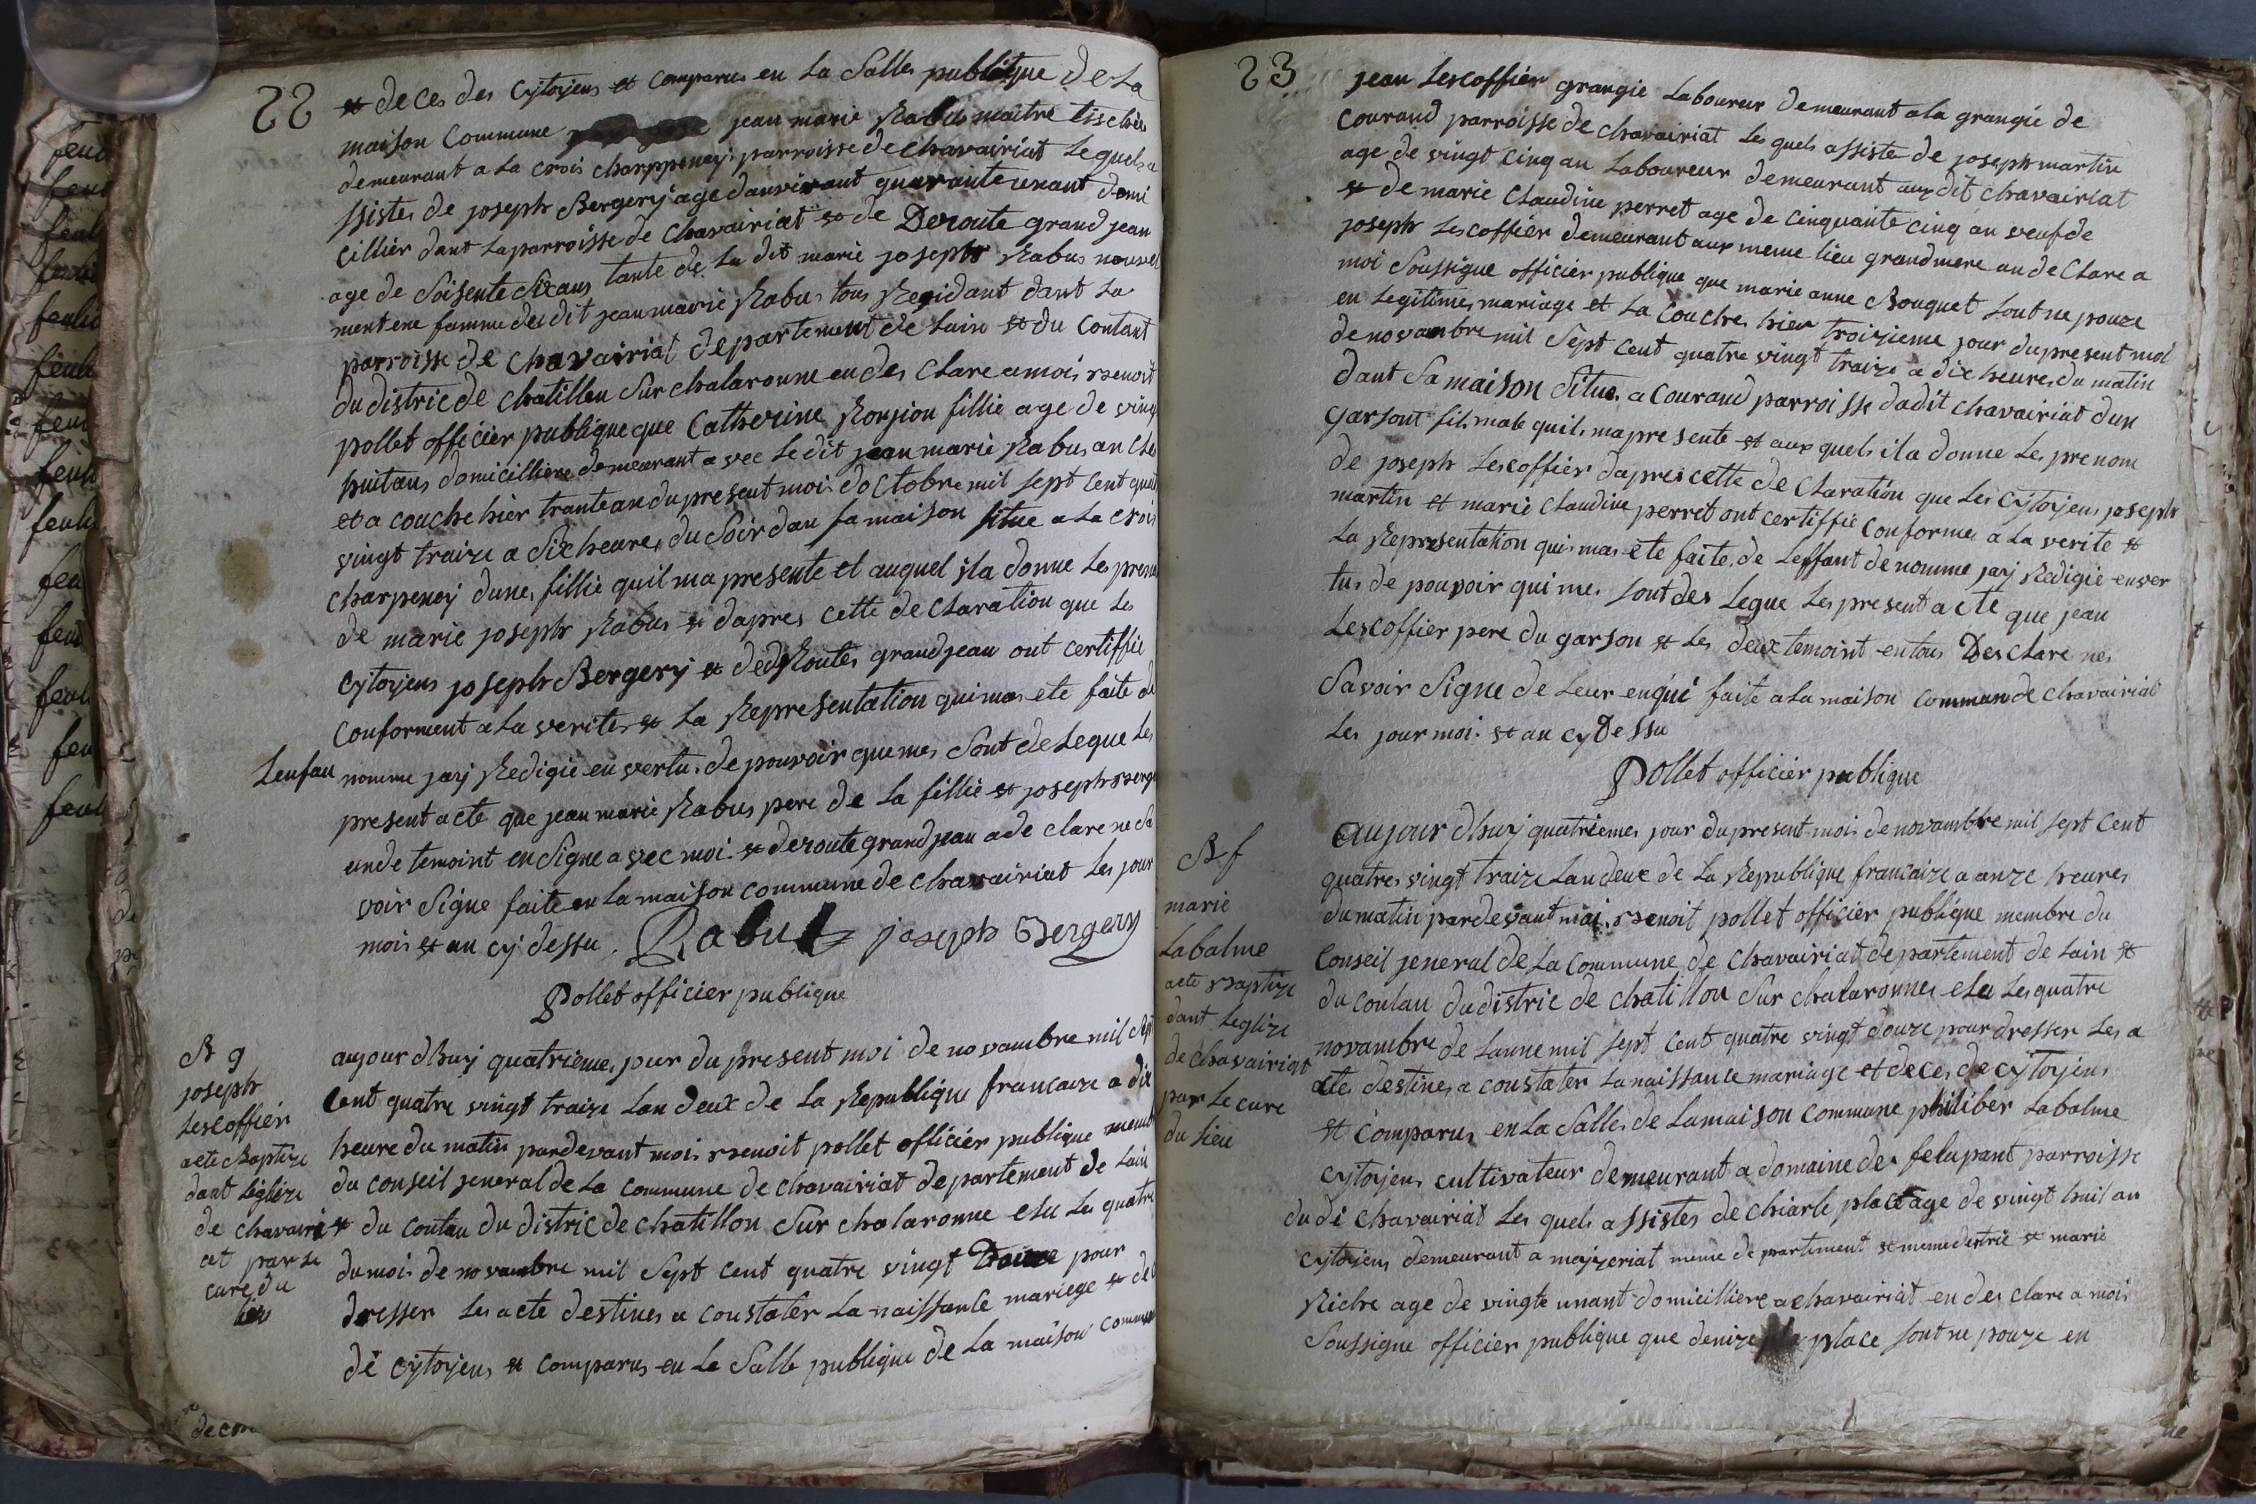 22
et deces des Cytoyens et comparus en La Salles publique de La
maison Commune jean marie Rabus maitre tischeu
demeurant a La crois charppeneyi parroisse de chavairiat Lequels a
ssistes de joseph Bergery age danviraut quarante unant domi
cillier dant La parroisse de Chavairiat et de Deroute grand jean
age de Soisente Sixans tante de La dit marie joseph Rabus nouvel
ment ene famme des dit jean marie Rabus tous Residant dant La
parroisse de chavairiat departement de Lain et du Contant
du distric de chatillon Sur chalaronne en des Clare a mois Benoit
pollet officier publique que Catherine Ronjion fillie age de ving
huitans domicilliere demeurant avec Le dit jean marie Rabus an che
et a couche hier trantean du present mois doctobre mil sept Cent quat
vingt traize a Six heures du Soir dan sa maison situe a La crois
charpeney dunes fillie quil ma presente et auquel ila donne Les preno
de marie joseph Rabus et dapres cette de Claration que Les
Cytoyens joseph Bergery et de deRoutes grandjean ont certiffie
Conforment a La verites et La Representation qui mas ete faite de
Lenfau nomme jay Redigie en vertus de pouvoir que mes Sont deLeque Les
present acte que jean marie Rabus pere de La fillie et joseph Berge
unde temoint en Signe avec moi et deroute grand jean a de clare ne Sa
voir Signe faite en La maison commune de Chavairiat Les jour
mois et an cy dessu. Rabut joseph Bergery
Pollet officier publique
B g
joseph
Lescoffier
acte Baptize
dant Leglize
de chavairi
at par Le
cure du
lieu
aujour dhuy quatriemes jour du present moi de novambre mil Sept
Cent quatre vingt traize Lan deux de La Republique francaize a dix
heure du matin pardevant mois Benoit pollet officier publique memb
du conseil jeneral de La Commune de chavairiat departement de Lain
et du coutau du distric de chatillon Sur chalaronne elu Le quatre
du moi de novambre mil Sept cent quatre vingt Douze pour
dresser Les acte destines a constater La naissance mariege et de
de cytoyens et comparus en La Salle publique de La maison commun
decm
23
jean Lescoffier grangie Laboureur demeurant a la grangie de
Couraud parroisse de chavairiat Les quels assiste de joseph martin
age de vingt cinq an Laboureur demeurant aux dit chavairiat
et de marie Claudine perret age de cinquante cinq an veuf de
joseph Lescoffier demeurant aux meme lieu grandmere an de Clare a
moi Soussigne officier publique que marie anne Bouquet Sont ne pouze
en Legitimes mariage et La Couches hier troizieme jour du present moi
de novambre mil Sept cent quatre vingt traize a dix heures du matin
dant Sa maison Situe a Couraud parroisse dadit chavairiat dun
garsont fils male quils ma presente et aux quels il a donne Les prenom
de joseph Lescoffier dapres cette de Claration que Les Cytoyens joseph
martin et marie Claudine perret ont certiffie Conformes a La verite et
La Representation qui mas ete faite de Leffant de nomme jay Redigie en ver
tus de pouvoir qui mes Sont des Legue Les present acte que jean
Lescoffier pere du garson et Les deux temoint en tous Des clare nes
Savoir Signe de Leur enqui faite a La maison Commun de chavairiat
Les jour moi et an cy Dessu
Pollet officier publique
B f
marie
Labalme
acte Baptize
dant Leglize
de Chavairiat
par Le cure
du lieu
aujour dhuy quatriemes jour du present mois de novambre mil Sept Cent
quatres vingt traize Landeux de La Republique francaize a onze heures
du matin pardevant moi Benoit pollet officier publique membre du
Conseil jeneral de La Commune de Chavairiat departement de Lain et
du coutau du distric de chatillon Sur chalaronnes elu Les quatre
novambre de Lanne mil Sept Cent quatre vingt douze pour dresser Les a
cte destines a constater La naissance mariage et deces de cytoyens
et comparus en La Salles de Lamaison commune philiber Labalme
cytoyens cultivateur demeurant a domaine de felupant parroisse
du di chavairiat Les quels assistes de chiarle place age de vingt huit an
cytoyens demeurant a mayzeriat meme de partiment et meme distric et marie
Riche age de vingte unant domicilliere a chavairiat en des clare a mois
Soussigne officier publique que denize place Sont ne pouze en